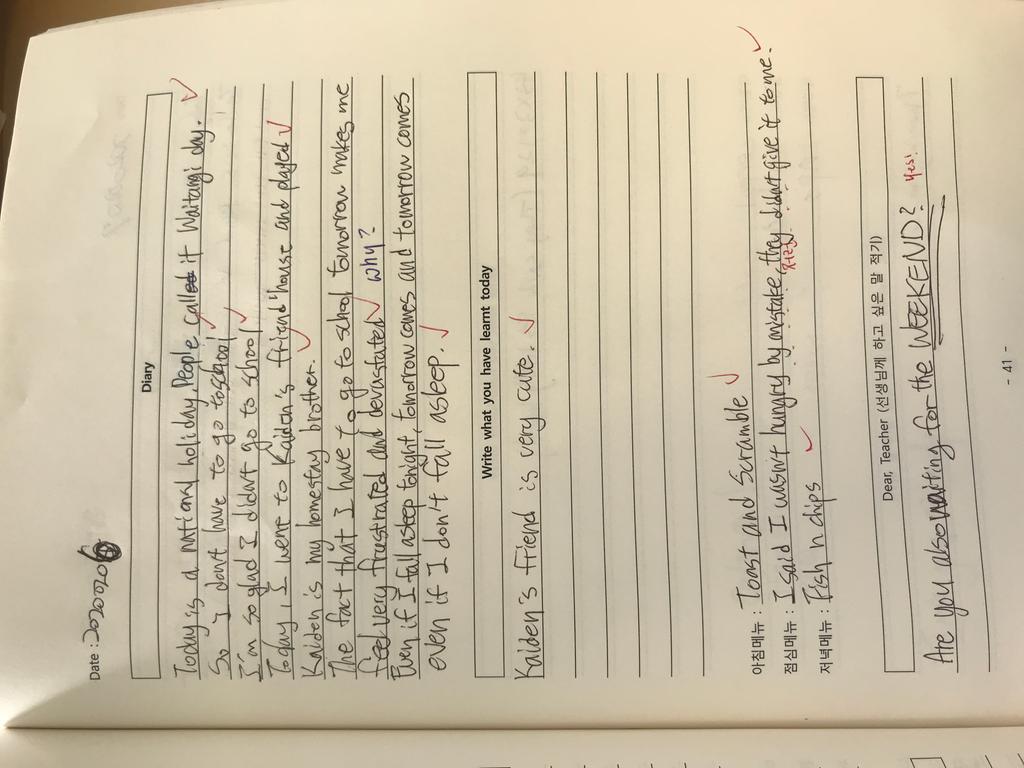 Date : 2020020
Diary
Today is a national holiday. People called it Waitangi day.
So I don't have to go to school!
I'm so glad I didn't go to school!
Today, I went to Kaiden's friend' house and played
Kaiden is my homestay brother.
The fact that I have to go to school tomorrow makes me
feel very frustrated and devastated why?
Even if I fall asleep tonight, tomorrow comes and tomorrow comes
even if I don't fall asleep.
Write what you have learnt today
Kaiden's friend is very cute.
아침메뉴 : Toast and Scramble
점심메뉴 : I said I wasn't hungry by mistake, they didn't give it to me.
저런
저녁메뉴 : Fish n chips
Dear, Teacher (선생님께 하고 싶은 말 적기)
Are you also waiting for the WEEKEND? yes!
- 41 -